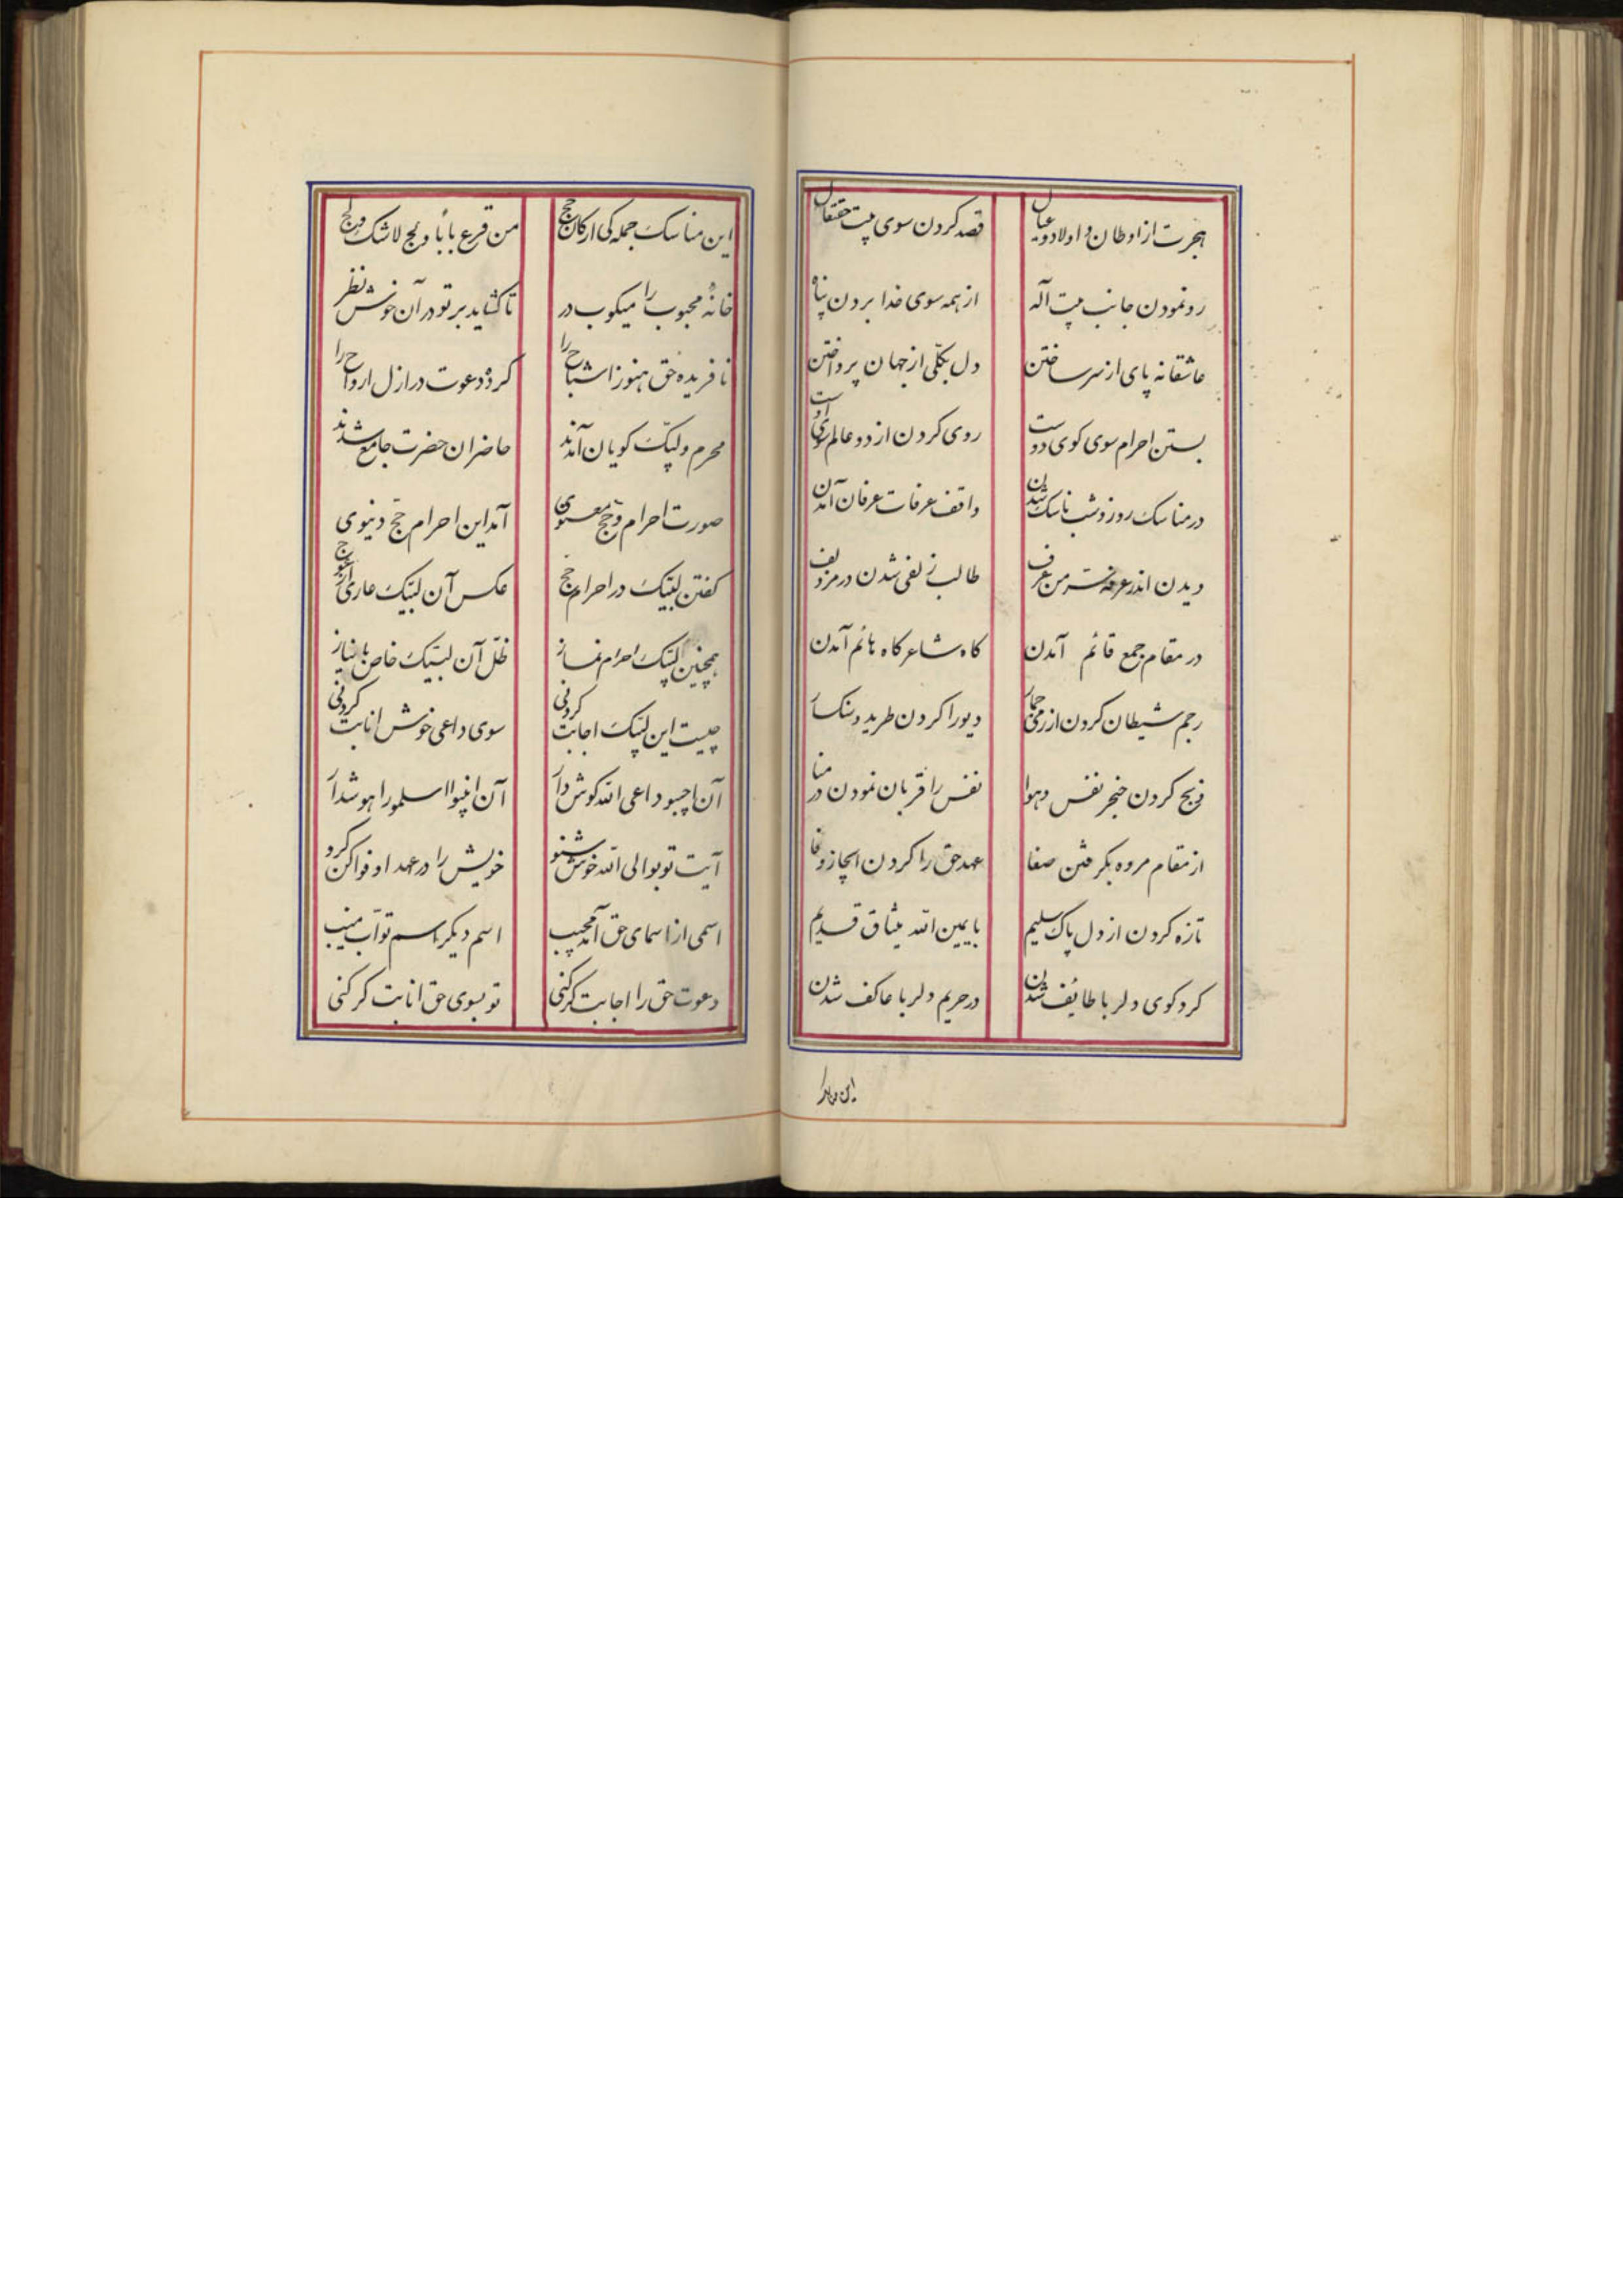 هجرت از اوطان و اولاد و عیال قصد کردن سوی بیت حقتعال
رو نمودن جانب بیت آله از همه سوی خدا بردن پناه
عاشقانه پای از سر ساختن دل بکلی از جهان پرداختن
بستن احرام سوی کوی دوست روی کردن از دو عالم سوی اوست
در مناسک روز و شب ناسک شدن واقف عرفات عرفان آمدن
دیدن اندر من عرف طالب زلفی شدن در مزدلف
در مقام جمع قائم آمدن کاه شاعر کاه هائم آمدن
رجم شیطان کردن از رمی جمار دیو را کردن طرید و سنکسار
ذبح کردن حنجر نفس و هوا نفس را قربان نمودن در منا
از مقام مروه بکرفتن صفا عهد حق را کردن انجاز و وفا
تازه کردن از دل پاک سلیم با یمین الله میثاق قدیم
کرد کوی دلربا طایف شدن در حریم دلربا عاکف شدن
این مناسک جملکی ارکان حج من قرع بابا و لج لاشک ولج
خانهٔ محبوب را میکوب در تا کشاید بر تو در آن خوش نظر
نافریده حق هنوز اشباح را کرده دعوت در ازل ارواح را
محرم و لبیک کویان آمدند حاضران حضرت جامع شدند
صورت احرام و حج معنوی آمد این احرام حج دنیوی
کفتن لبیک در احرام حج عکس آن لبیک عاری از عوج
همچنین لبیک احرام نماز ظل آن لبیک خاص با نیاز
چیست این لبیک اجابت کردنی سوی داعی خوش انابت کردنی
آن اجیبو داعی الله کوش دار آن انیبوا اسلمو را هوشدار
آیت توبوا لی الله خوش شنو خویش را در عهد او فوا کن کرو
اسمی از اسمای حق آمد مجیب اسم دیکر اسم تواب منیب
دعوت حق را اجابت کر کنی تو بسوی حق انابت کر کنی